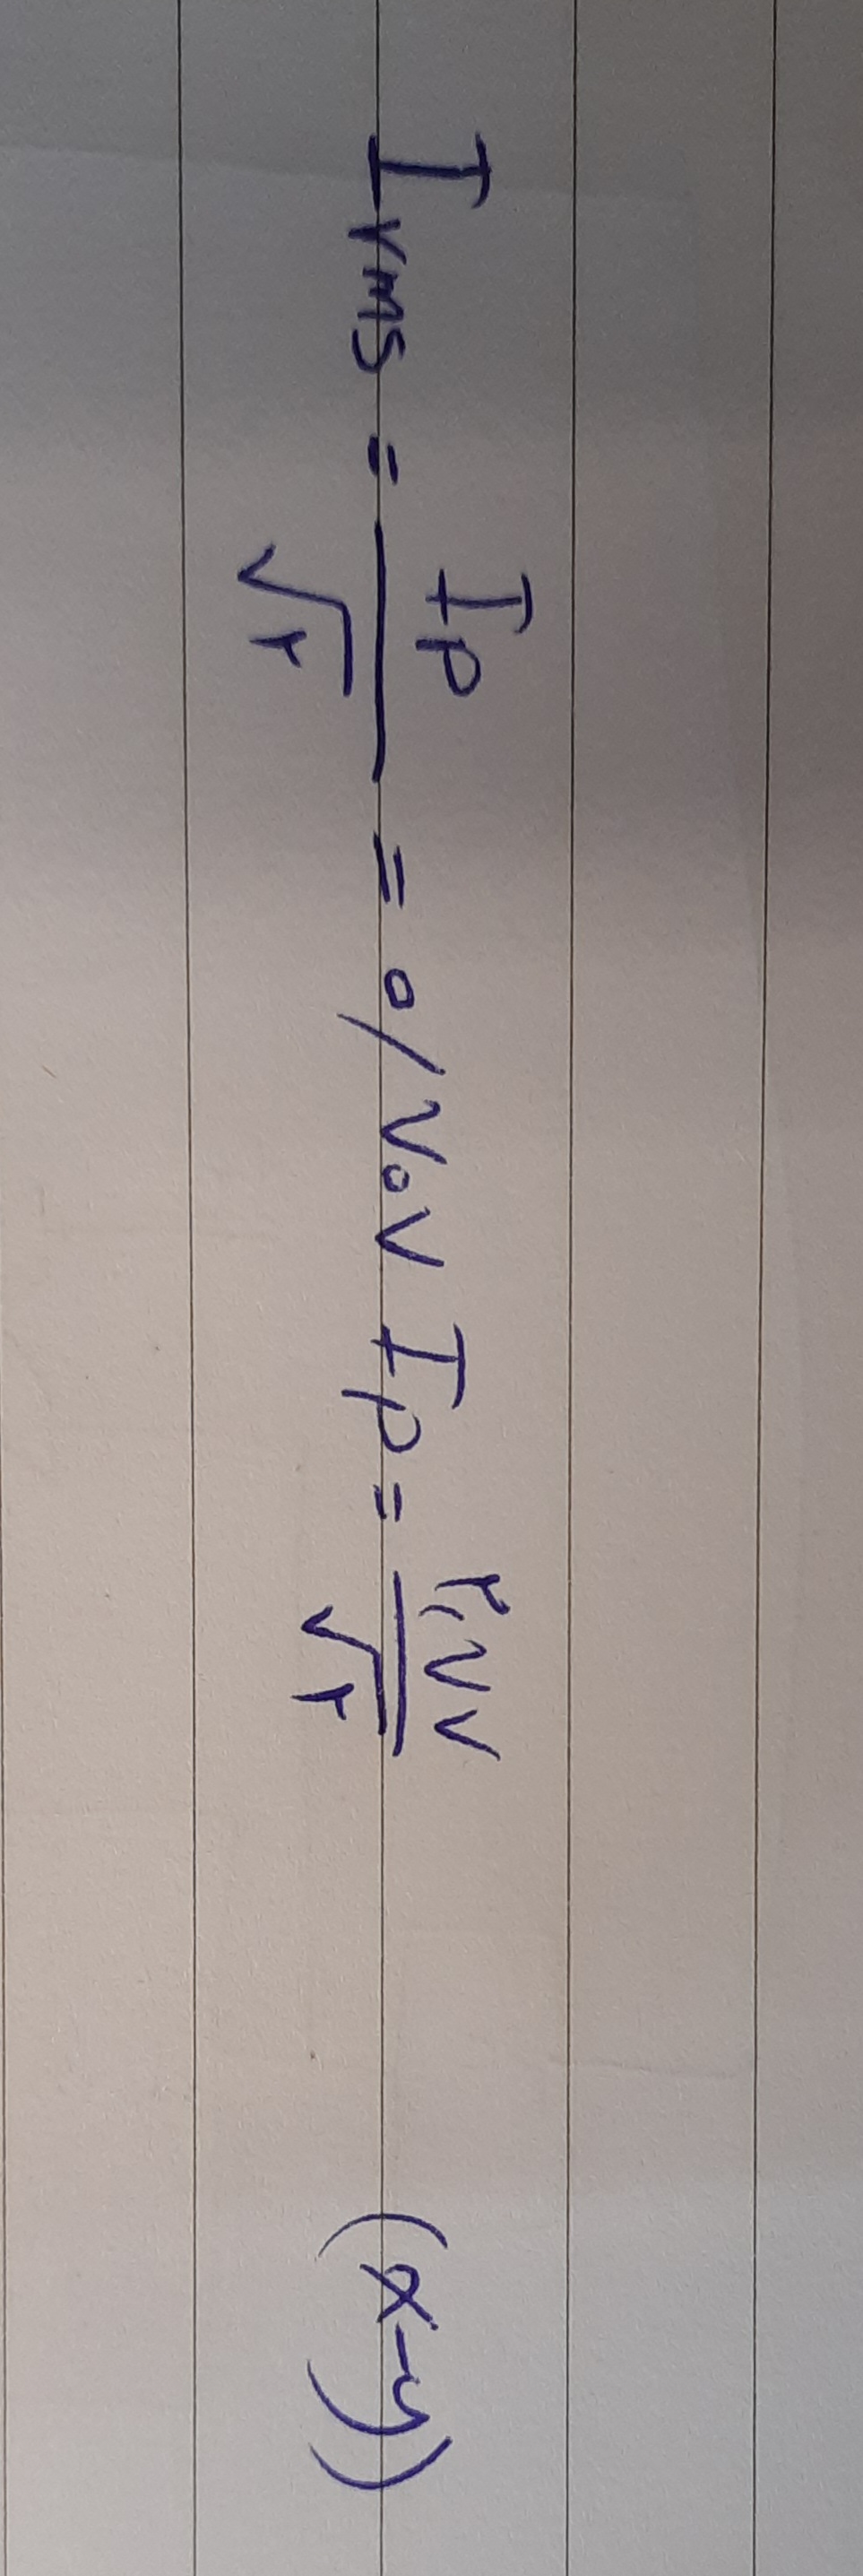 I_rms = I_p / √۲ = ۰/۷۰۷ I_p = ۲,۷۷ / √۲ (x-y)